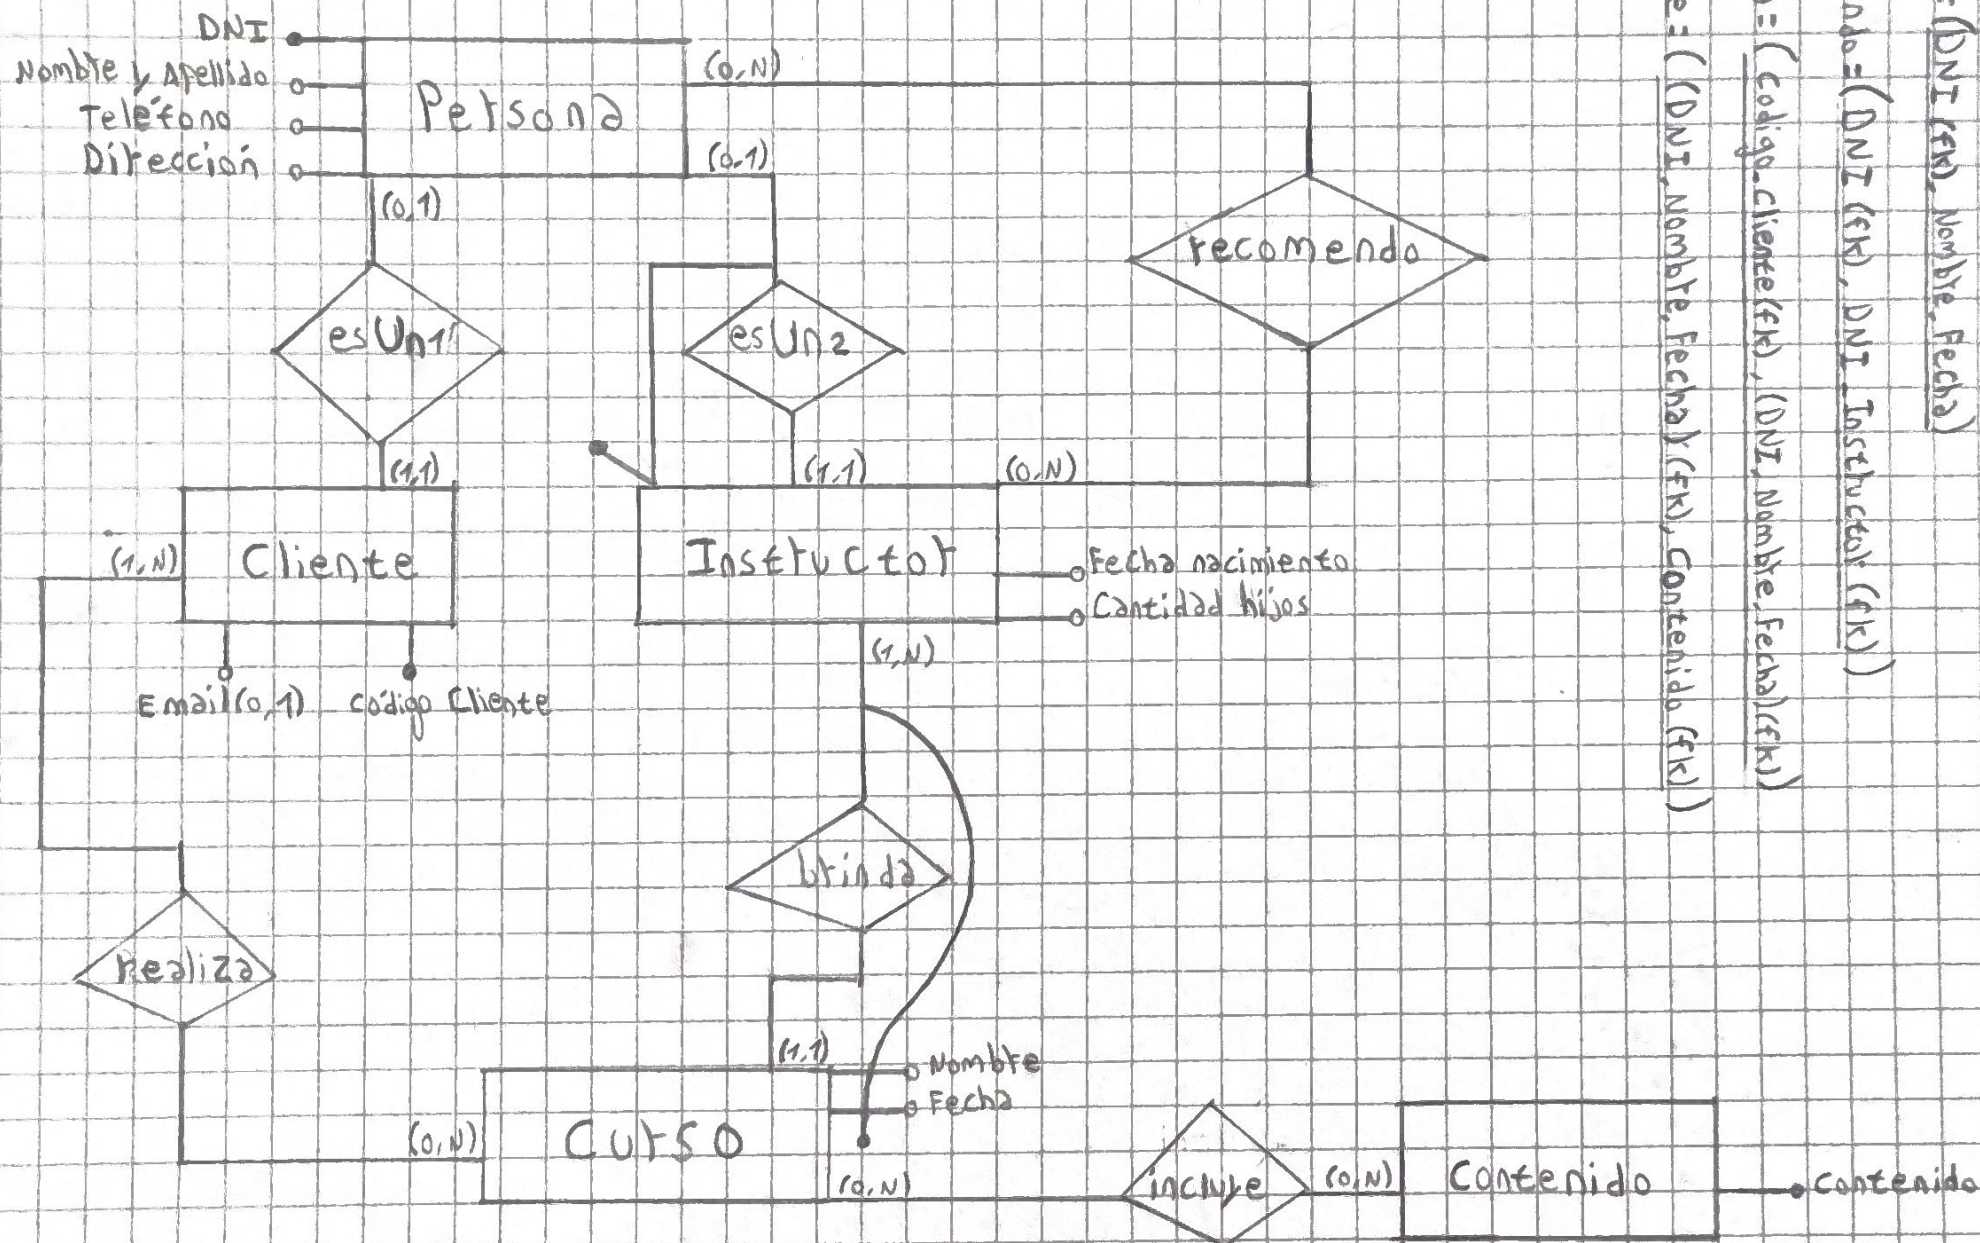 DNI
Nombre y Apellido
Teléfono
Dirección
Persona
(0,N)
(0,1)
(0,1)
recomendo
esUn1
esUn2
(1,1)
(1,1)
(0,N)
(1,N)
Cliente
Instructor
Fecha nacimiento
Cantidad hijos
(1,N)
Email(0,1)
Código Cliente
brinda
Realiza
(1,1)
Nombre
Fecha
(0,N)
Curso
(0,N)
incluye
(0,N)
Contenido
Contenido
=(DNI(fk), Nombre, Fecha)
ndo=(DNI(fk), DNI_Instructor(fk))
a=(Codigo_cliente(fk),(DNI, Nombre, Fecha)(fk))
e=((DNI, Nombre, Fecha)(fk), Contenido(fk))